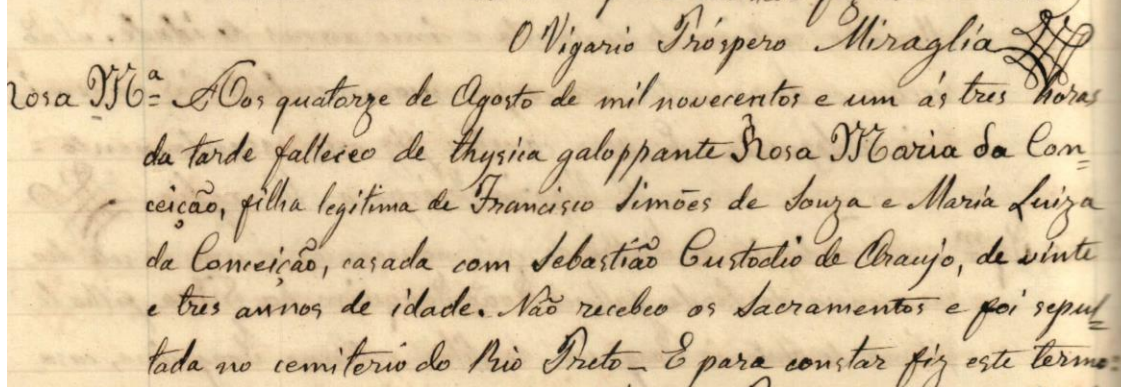 O Vigario Próspero Miraglia
Rosa Mª= Aos quatorze de Agosto de mil novecentos e um ás tres horas
da tarde falleceo de thysica galoppante Rosa Maria da Con=
ceição, filha legitima de Francisco Simões de Souza e Maria Luiza
da Conceição, casada com Sebastião Custodio de Araujo, de vinte
e tres annos de idade. Não recebeo os Sacramentos e foi sepul=
tada no cemiterio do Rio Preto_ E para constar fiz este termo=